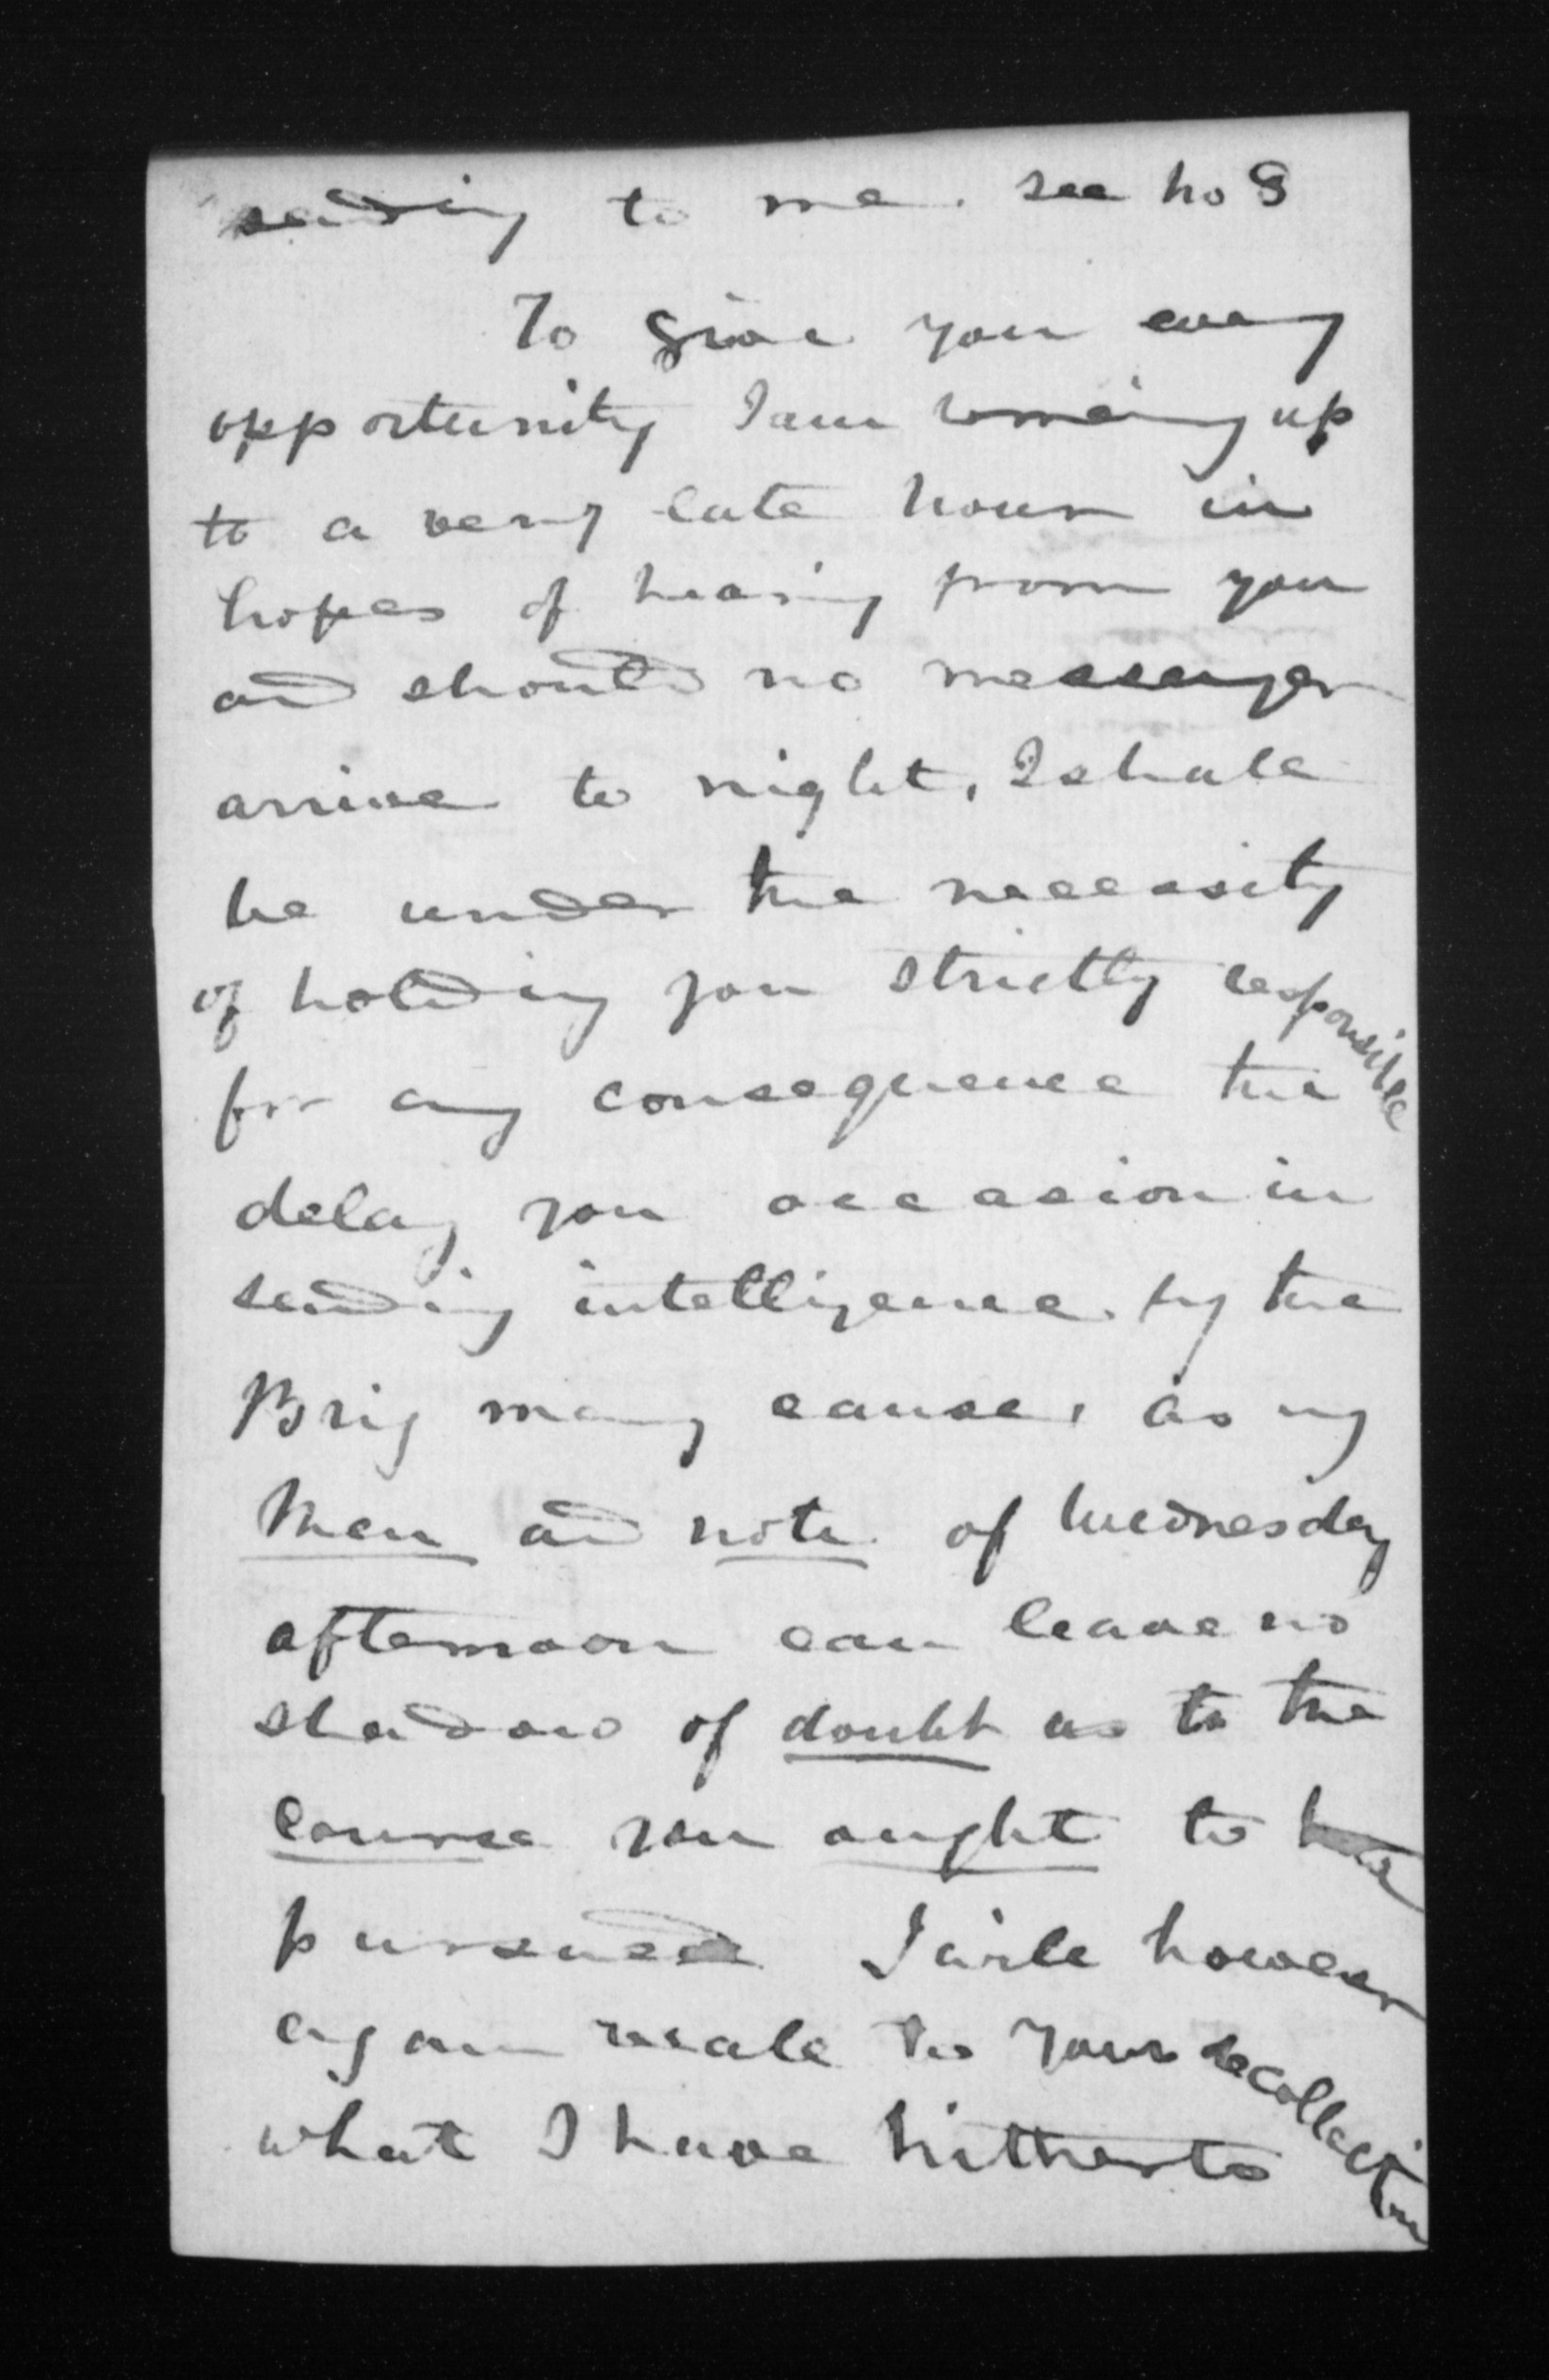 sending to me. see no 8
To give you every
opportunity I am remaining up
to a very late hour in
hopes of hearing from you
and should no messenger
arrive to night, I shall
be under the necessity
of holding you strictly responsible
for any consequence the
delay you occasion in
sending intelligence by the
Brig may cause, as my
Men and note of Wednesday
afternoon can leave no
shadow of doubt as to the
course you ought to
pursued I will however
again recall to your recollection
what I have hitherto